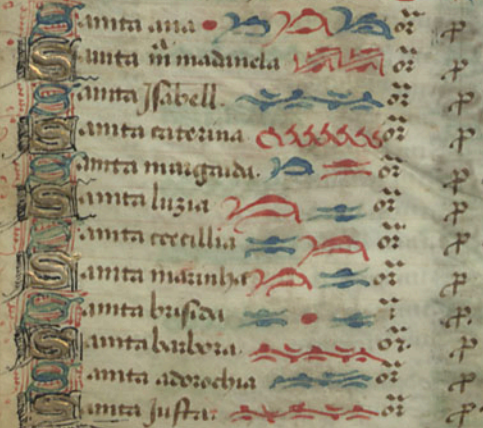 Santa ana or p
Santa m madanela or p
Santa Jsabell. or p
Santa caterina or p
Santa margarida. or p
Santa luzia or p
Santa cecillia or p
Santa marinha or p
Santa brisida r p
Santa barbora. or. p
Santa adorochia or p
Santa Justa. or p